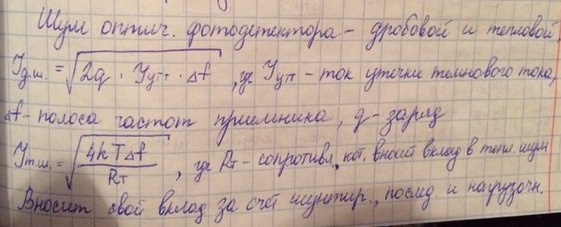 Шум оптич. фотодетектора - дробовой и тепловой,
Iд.ш. = √2q · Iутт · Δf, где Iутт - ток утечки темнового тока,
Δf - полоса частот приемника, q - заряд
Iт.ш. = √4kTΔf/Rт, где Rт - сопротивл., кот. вносит вклад в тепл. шум
Вносит свой вклад за счёт шунтир., послед. и нагрузочн.